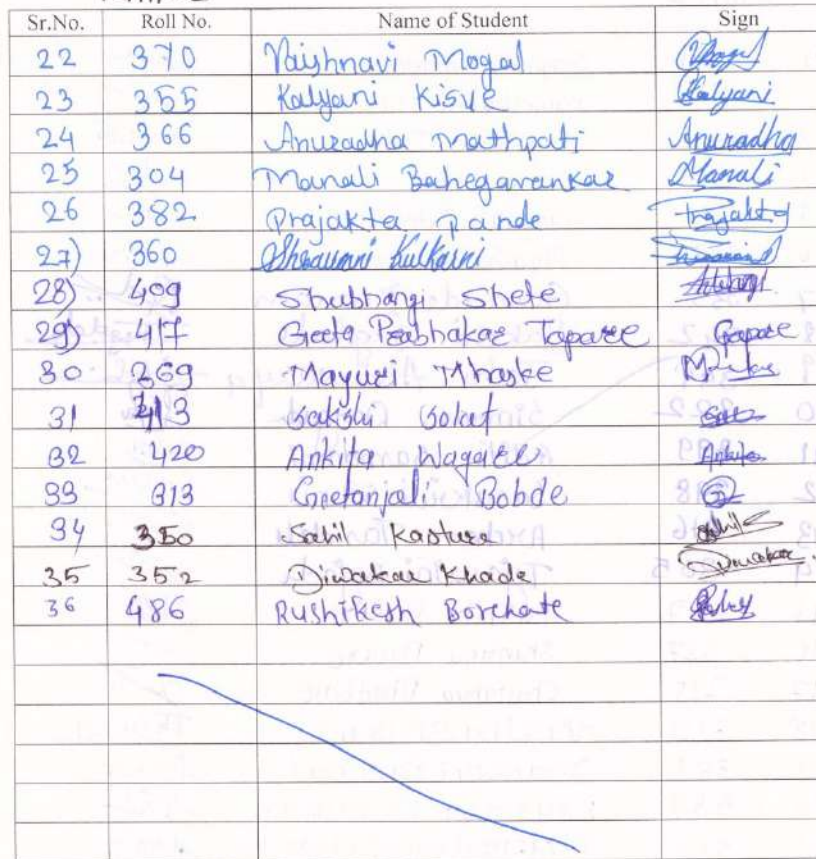 Sr.No. Roll No. Name of Student Sign
22 370 Vaishnavi Mogal
23 355 Kalyani Kisve Kalyani
24 366 Anuradha Mathpati Anuradha
25 304 Manali Bahegavankar Manali
26 382 Prajakta Pande Prajakta
27) 360 Shravani Kulkarni
28) 409 Shubhangi Shete
29) 417 Geeta Prabhakar Taparee Gapare
30 369 Mayuri Mhaske
31 413 Sakshi Solat
32 420 Ankita Wagaree Ankita
33 313 Geetanjali Bobde
34 350 Sahil Kasture
35 352 Diwakar Khade Diwakar
36 486 Rushikesh Borchate